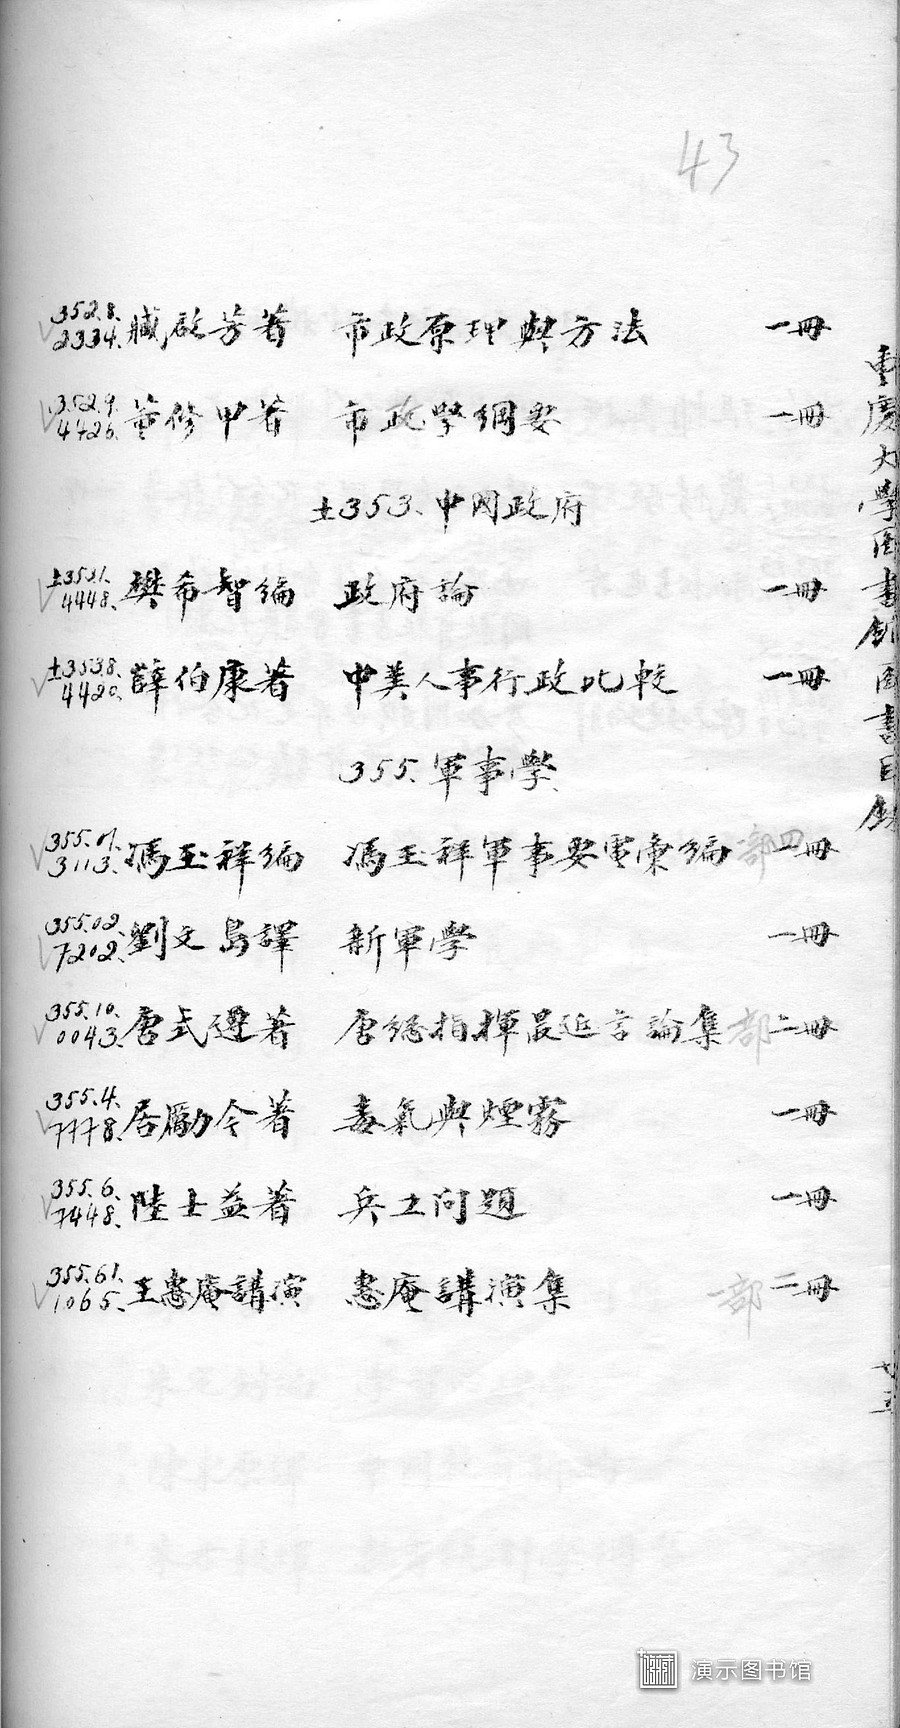 43
352.8. 2334. 臧啟芳著 市政原理與方法 一冊
352.9. 4425. 董修甲著 市政學綱要 一冊
±353. 中国政府
±353.1. 4448. 樊希智編 政府論 一冊
±353.8. 4420. 薛伯康著 中美人事行政比較 一冊
355. 軍事學
355.01. 3113. 馮玉祥編 馮玉祥軍事要電彙編 部 四冊
355.02. 7202. 劉文島譯 新軍學 一冊
355.10. 0043. 唐式遵著 唐總指揮最近言論集 部 二冊
355.4. 7778. 居勵今著 毒氣與煙霧 一冊
355.6. 7448. 陸士益著 兵工问題 一冊
355.61. 1065. 王惠庵講演 惠庵講演集 一部 二冊
重慶大學図書館図書目錄
演示图书馆